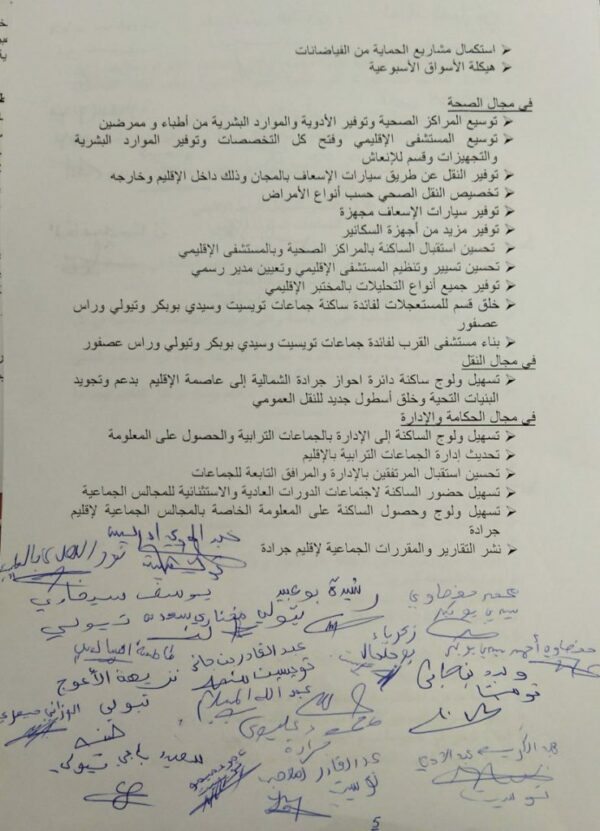 استكمال مشاريع الحماية من الفياضانات
هيكلة الأسواق الأسبوعية
في مجال الصحة
توسيع المراكز الصحية وتوفير الأدوية والموارد البشرية من أطباء و ممرضين
توسيع المستشفى الإقليمي وفتح كل التخصصات وتوفير الموارد البشرية
والتجهيزات وقسم للإنعاش
توفير النقل عن طريق سيارات الإسعاف بالمجان وذلك داخل الإقليم وخارجه
تخصيص النقل الصحي حسب أنواع الأمراض
توفير سيارات الإسعاف مجهزة
توفير مزيد من أجهزة السكانير
تحسين استقبال الساكنة بالمراكز الصحية وبالمستشفى الإقليمي
تحسين تسيير وتنظيم المستشفى الإقليمي وتعيين مدير رسمي
توفير جميع أنواع التحليلات بالمختبر الإقليمي
خلق قسم للمستعجلات لفائدة ساكنة جماعات تويسيت وسيدي بوبكر وتيولي وراس
عصفور
بناء مستشفى القرب لفائدة جماعات تويسيت وسيدي بوبكر وتيولي وراس عصفور
في مجال النقل
تسهيل ولوج ساكنة دائرة احواز جرادة الشمالية إلى عاصمة الإقليم بدعم وتجويد
البنيات التحية وخلق أسطول جديد للنقل العمومي
في مجال الحكامة والإدارة
تسهيل ولوج الساكنة إلى الإدارة بالجماعات الترابية والحصول على المعلومة
تحديث إدارة الجماعات الترابية بالإقليم
تحسين استقبال المرتفقين بالإدارة والمرافق التابعة للجماعات
تسهيل حضور الساكنة لاجتماعات الدورات العادية والاستثنائية للمجالس الجماعية
تسهيل ولوج وحصول الساكنة على المعلومة الخاصة بالمجالس الجماعية لإقليم
جرادة
نشر التقارير والمقررات الجماعية لإقليم جرادة
رشيدة بوعبيد
تيولي
يوسف
تيولي
زكرياء
عبد القادر بن حاني
تويسيت
نزيهة الأعوج
تيولي
عبد الله
جرادة
سعيد باجي تيولي
عبد القادر
تويسيت
5